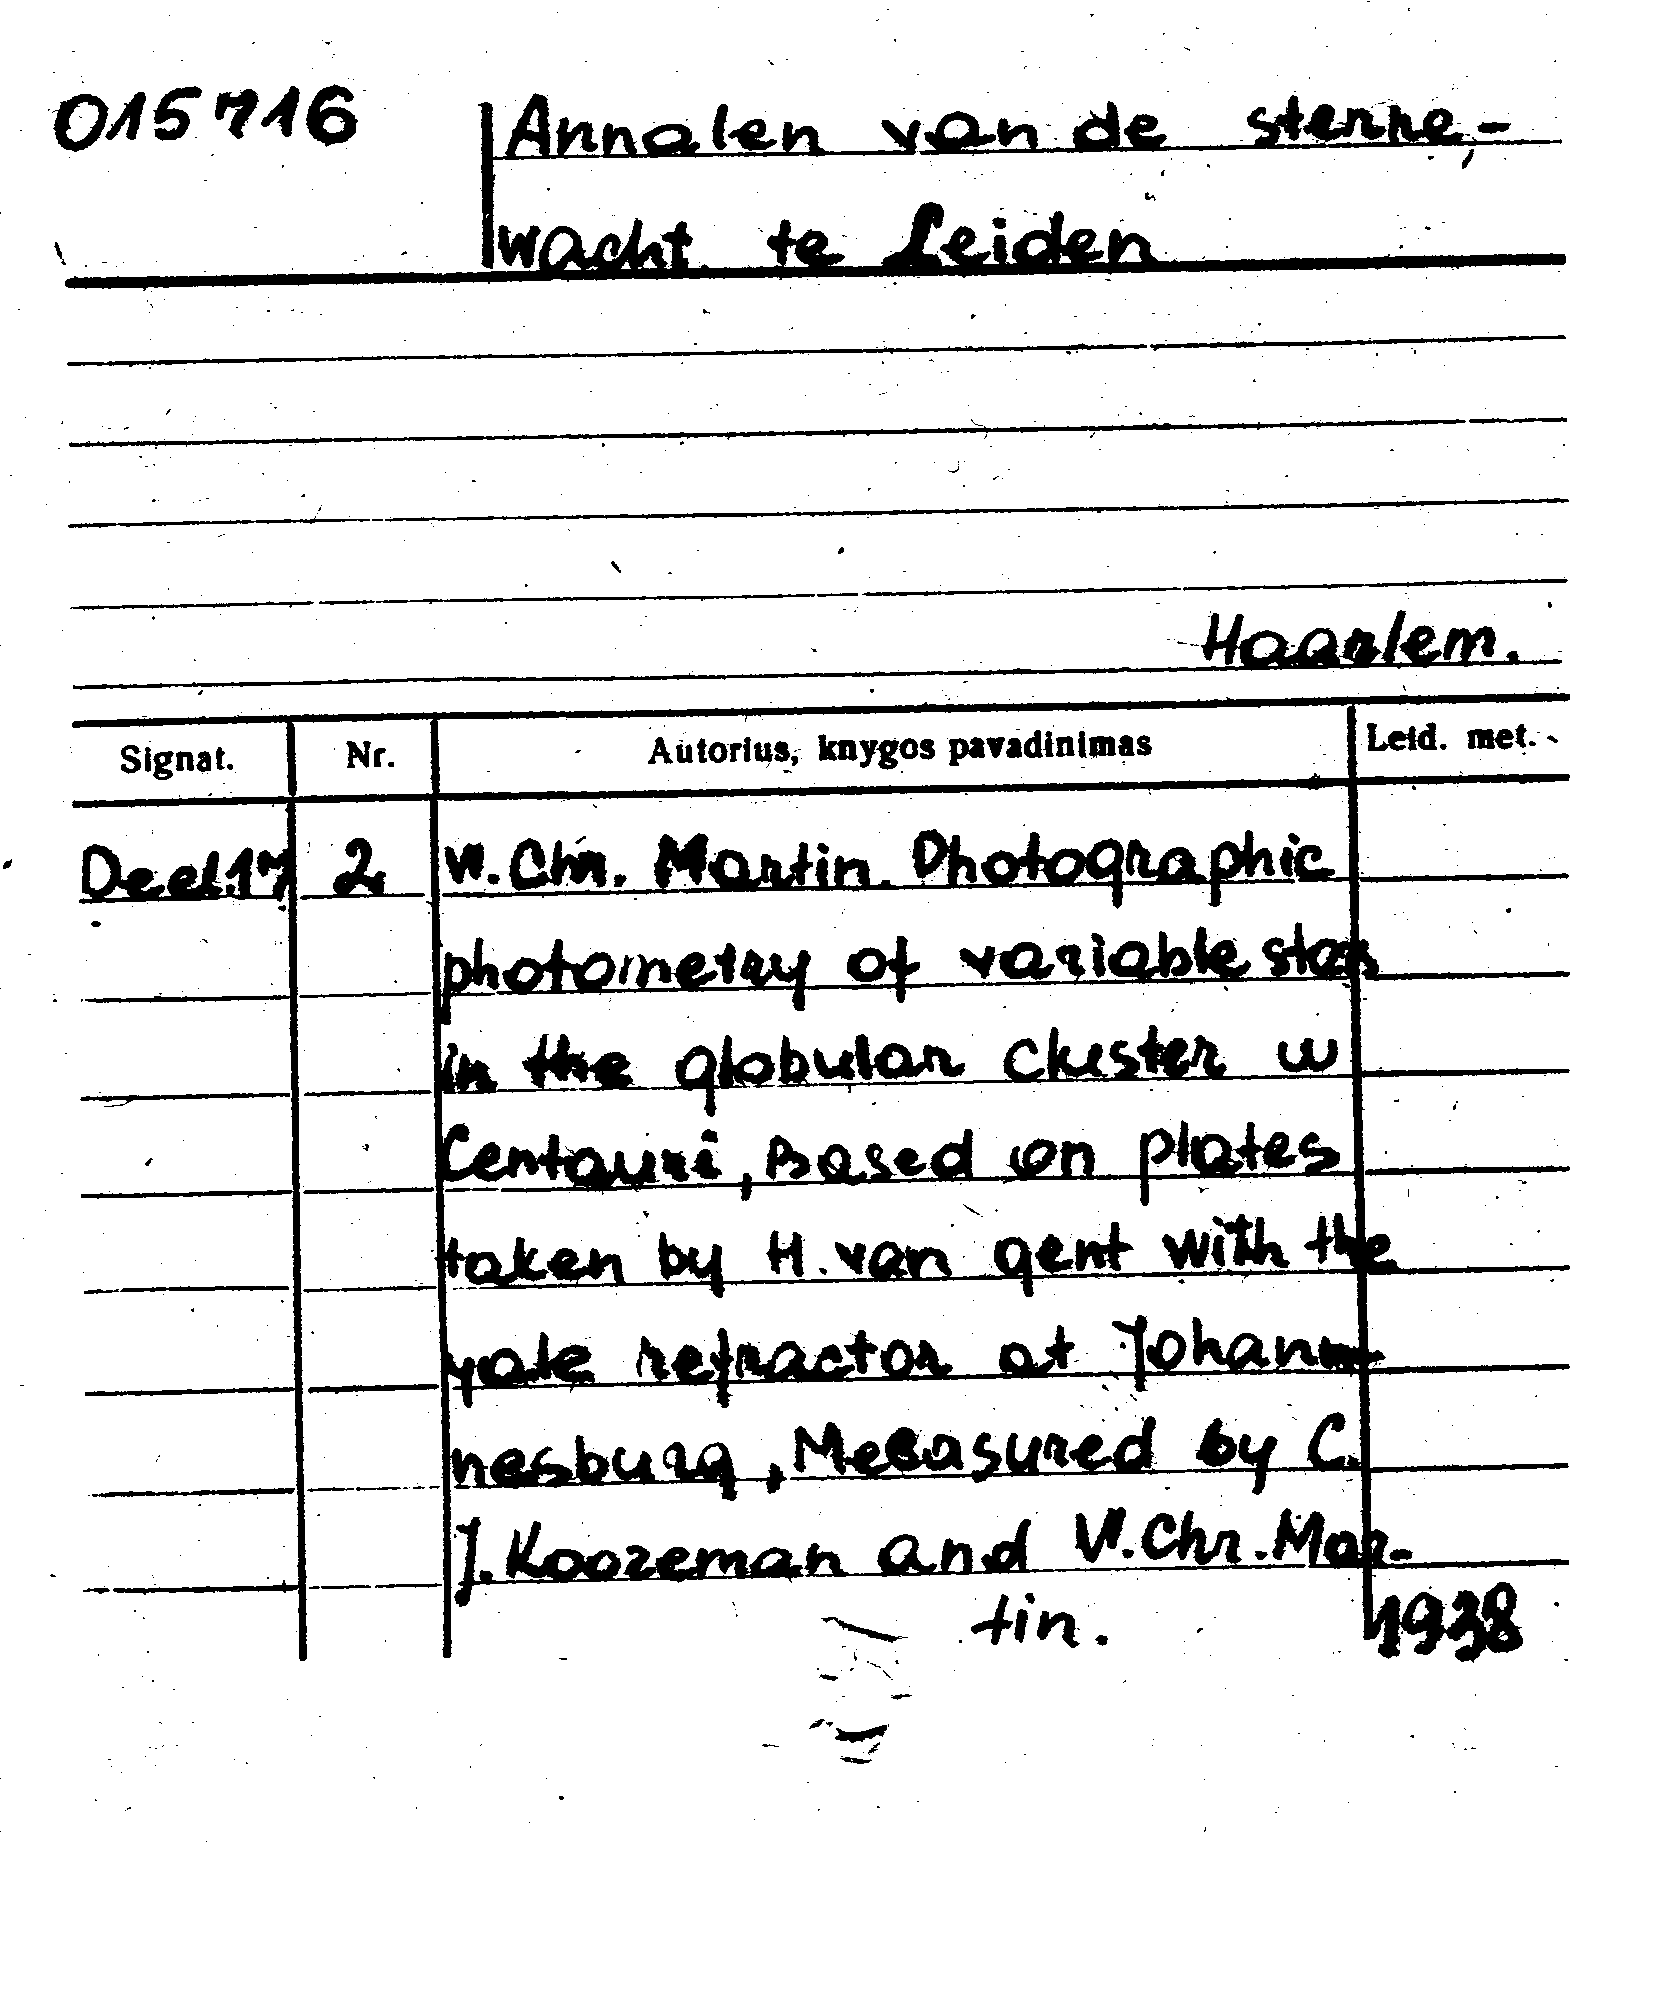 015716 Annalen van de sterre,-
wacht te Leiden
Haarlem.
Signat. Nr. Autorius, knygos pavadinimas Leid. met.
Deel.17 2. W. Chr. Martin. Photographic
photometry of variable stars
in the globular cluster w
Centauri, Based on plates
taken by H. van gent with the
yale refractor at Johann-
nesburg, Measured by C.
J. Koozeman and W. Chr. Mar-
tin. 1938